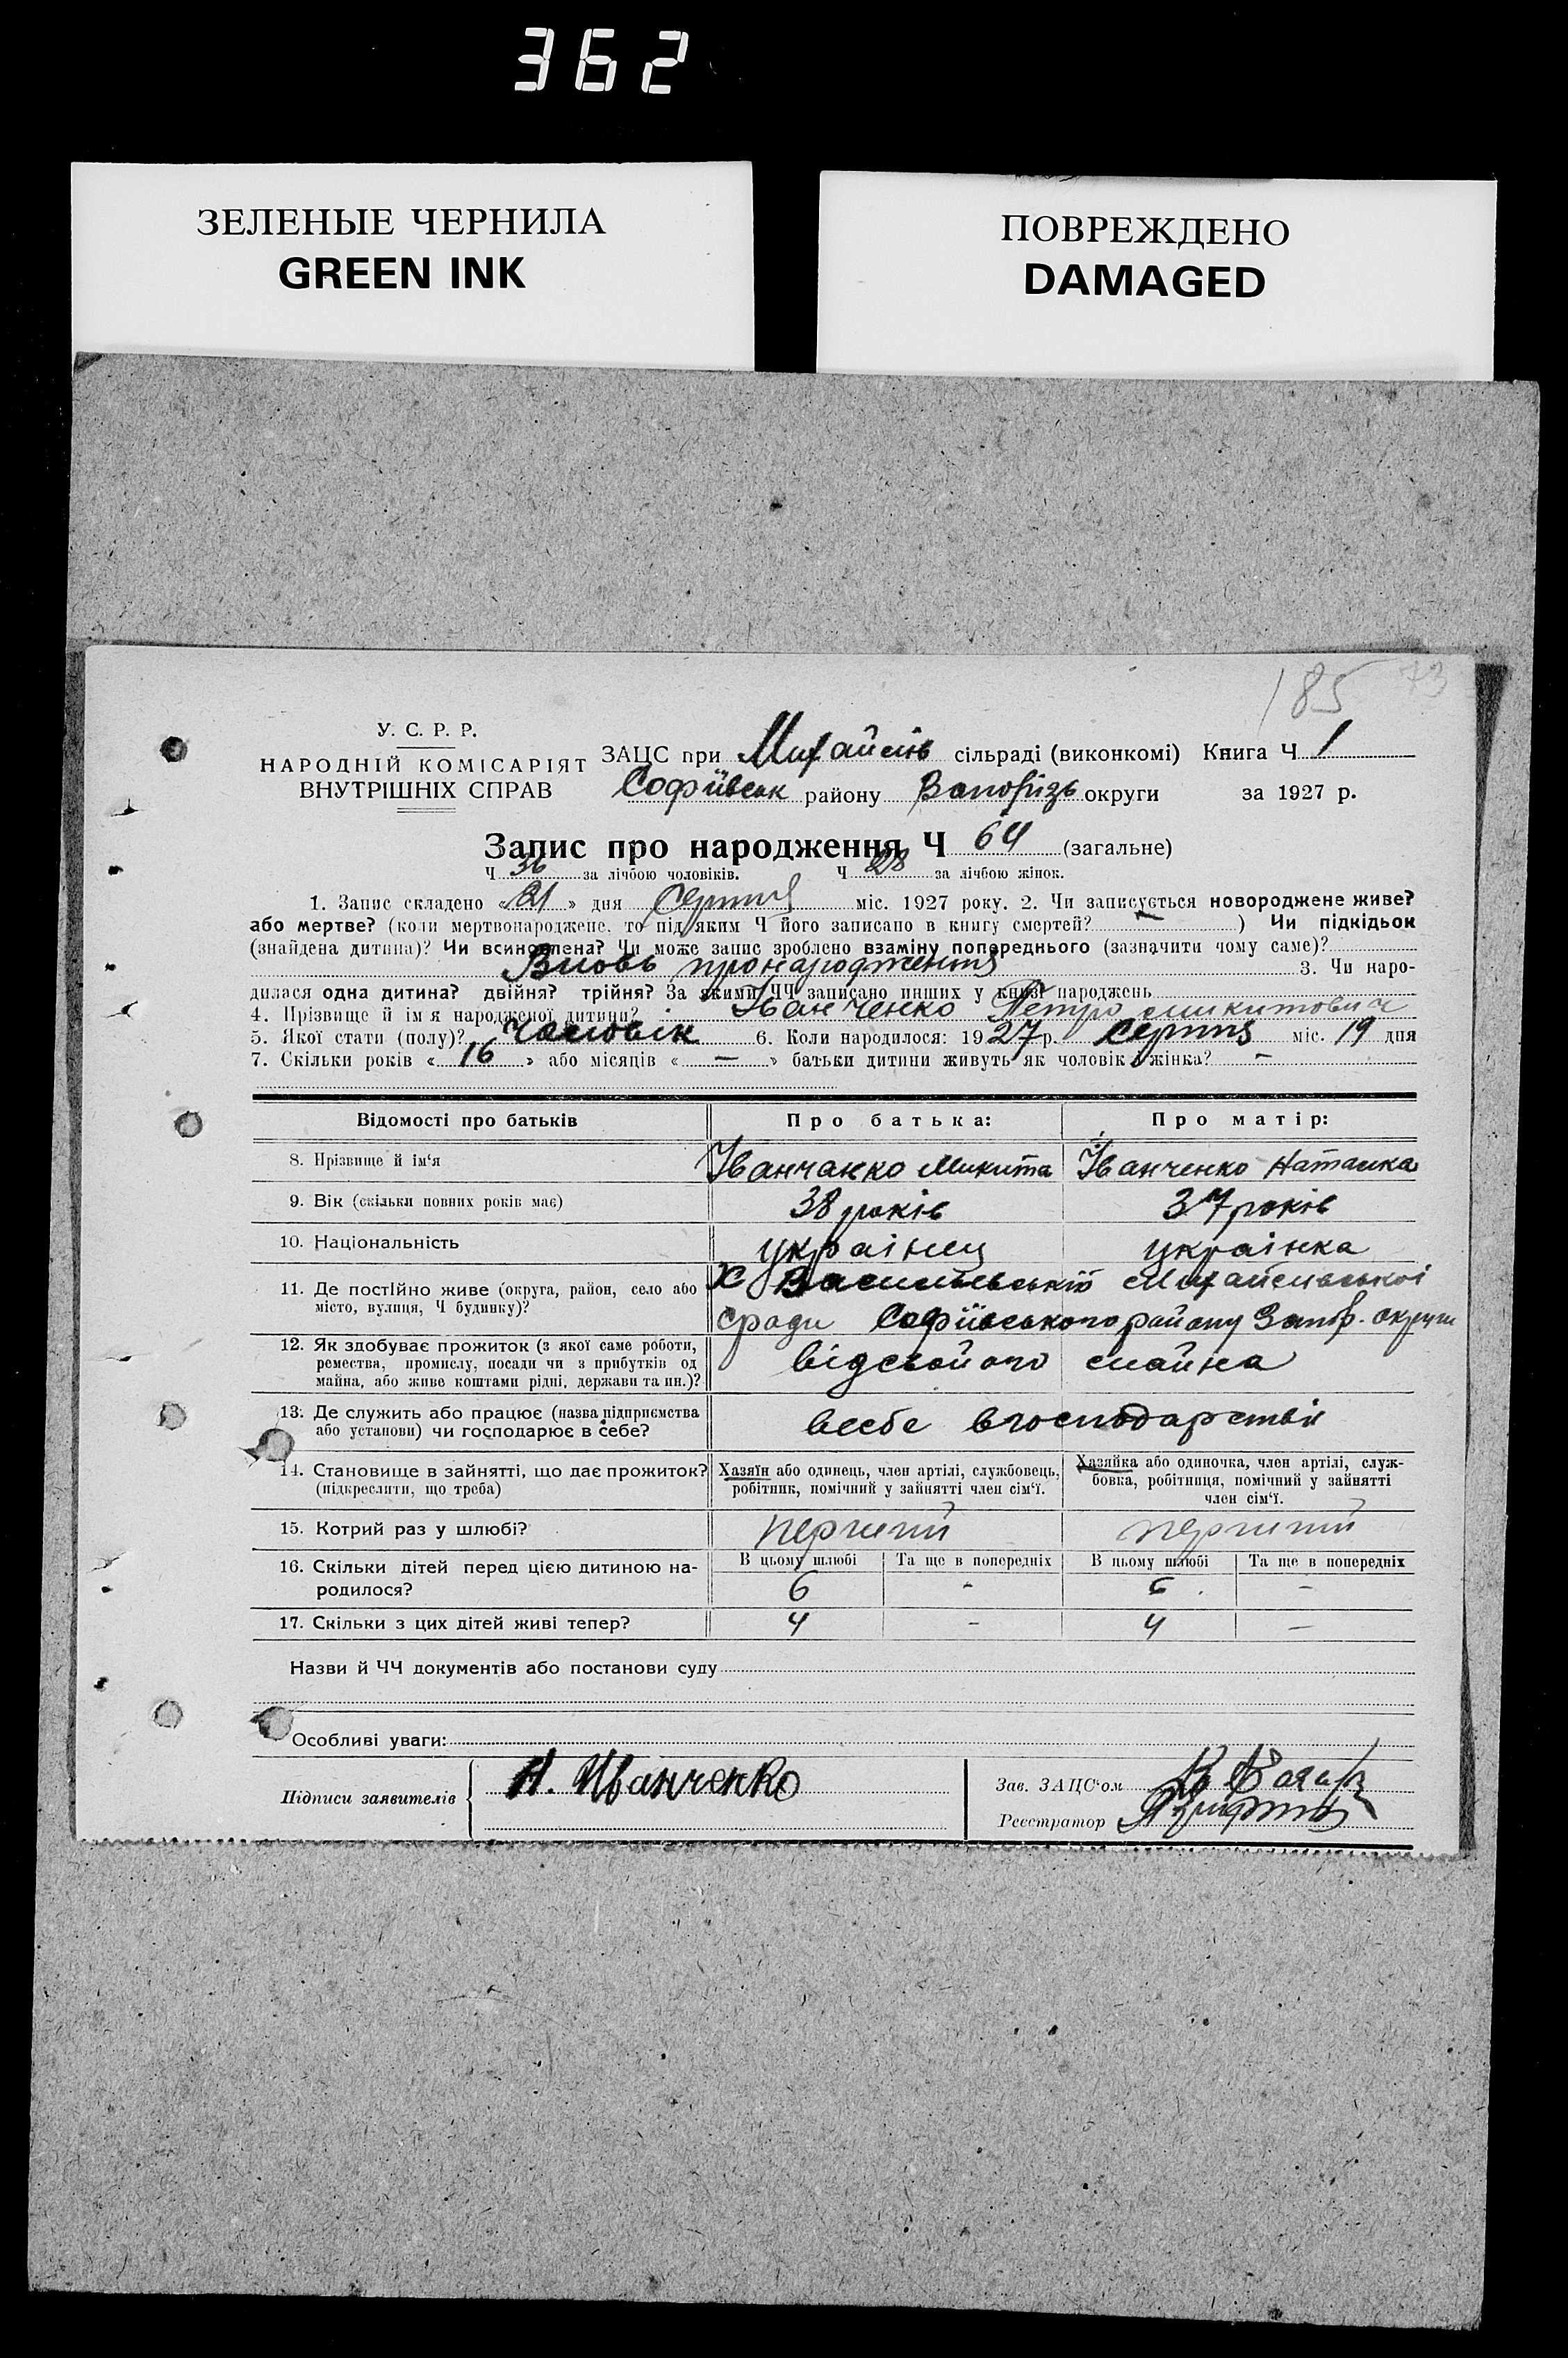 362
ЗЕЛЕНЫЕ ЧЕРНИЛА
GREEN INK
ПОВРЕЖДЕНО
DAMAGED
185 73
У. С. Р. Р.
НАРОДНІЙ КОМІСАРІЯТ
ВНУТРІШНІХ СПРАВ
ЗАЦС при Михайлів сільраді (виконкомі) Книга Ч 1
Софіївськ району Запорізь округи за 1927 р.
Запис про народження Ч 64 (загальне)
Ч 36 за лічбою чоловіків. Ч 28 за лічбою жінок.
1. Запис складено «21» дня Серпня міс. 1927 року. 2. Чи записується новороджене живе?
або мертве? (коли мертвонароджене, то під яким Ч його записано в книгу смертей? — ) Чи підкідьок
(знайдена дитина)? Чи всиновлена? Чи може запис зроблено взаміну попереднього (зазначити чому саме)?
Вновь пронародження 3. Чи наро-
дилася одна дитина? двійня? трійня? За якими ЧЧ записано инших у книзі народжень
4. Прізвище й ім'я народженої дитини? Іванченко Петро Микитович
5. Якої стати (полу)? Чаловік 6. Коли народилося: 1927 р. Серпня міс. 19 дня
7. Скільки років «16» або місяців «—» батьки дитини живуть як чоловік і жінка? –
Відомості про батьків Про батька: Про матір:
8. Прізвище й ім'я Іванчанко Микита Іванченко Наталка
9. Вік (скільки повних років має) 38 років 37 років
10. Національність украінец украінка
11. Де постійно живе (округа, район, село або
місто, вулиця, Ч будинку)?
х Васильевській Михайлівськоі
сради Софіївського району Запор. округи
12. Як здобуває прожиток (з якої саме роботи,
ремества, промислу, посади чи з прибутків од
майна, або живе коштами рідні, держави та ин.)?
відсвойого майна
13. Де служить або працює (назва підприємства
або установи) чи господарює в себе?
всебе вгосподарстві
14. Становище в зайнятті, що дає прожиток?
(підкреслити, що треба)
Хазяїн або одинець, член артілі, службовець,
робітник, помічний у зайнятті член сім'ї.
Хазяйка або одиночка, член артілі, служ-
бовка, робітниця, помічний у зайнятті
член сім'ї.
15. Котрий раз у шлюбі? перший перший
16. Скільки дітей перед цією дитиною на-
родилося?
В цьому шлюбі Та ще в попередніх В цьому шлюбі Та ще в попередніх
6 - 6 -
17. Скільки з цих дітей живі тепер? 4 - 4 -
Назви й ЧЧ документів або постанови суду
Особливі уваги:
Підписи заявителів Н. Иванченко
Зав. ЗАЦС'ом
Реєстратор